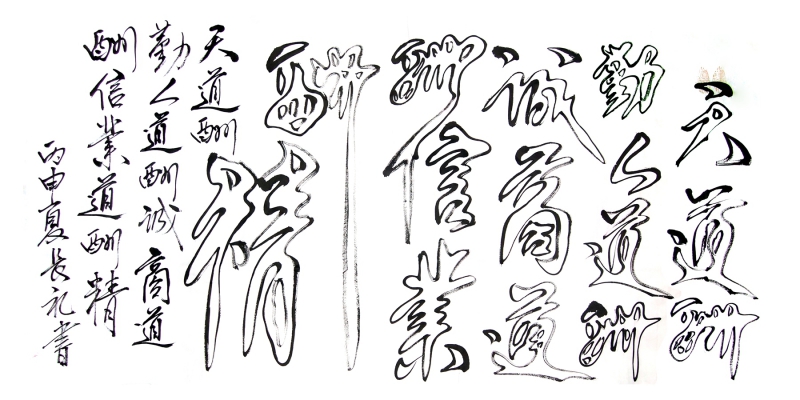 天道酬
勤人道酬
诚商道
酬信業
酬
精
天道酬
勤人道酬诚商道
酬信業道酬精
丙申夏长礼書